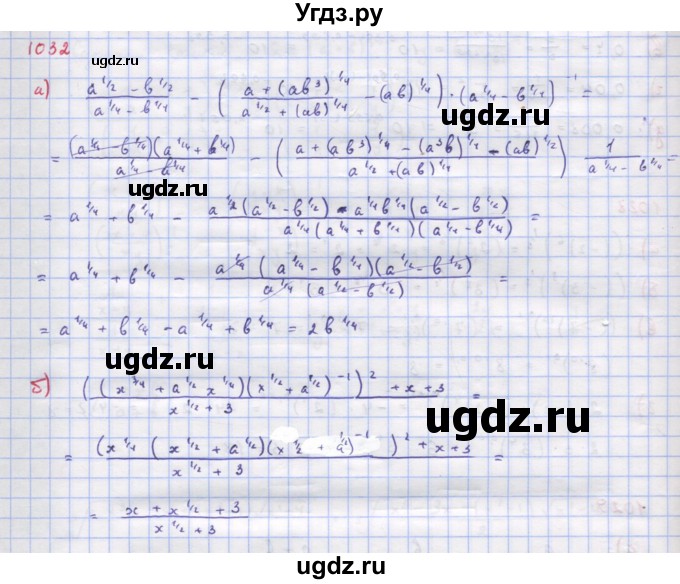 Угдз.ру
1032
ugdz.ru
а) (a^1/2 - b^1/2)/(a^1/4 - b^1/4) - ( (a + (ab^3)^1/4)/(a^1/2 + (ab)^1/4) - (ab)^1/4 ) · (a^1/4 - b^1/4)^-1 =
ugdz.ru
= ((a^1/4 - b^1/4)(a^1/4 + b^1/4))/(a^1/4 - b^1/4) - ( (a + (ab^3)^1/4 - (a^3b)^1/4 - (ab)^1/2)/(a^1/2 + (ab)^1/4) ) 1/(a^1/4 - b^1/4) =
ugdz.ru
= a^1/4 + b^1/4 - (a^1/2(a^1/2 - b^1/2) - a^1/4 b^1/4(a^1/2 - b^1/2))/(a^1/4(a^1/4 + b^1/4)(a^1/4 - b^1/4)) =
= a^1/4 + b^1/4 - (a^1/4(a^1/4 - b^1/4)(a^1/2 - b^1/2))/(a^1/4(a^1/2 - b^1/2)) =
= a^1/4 + b^1/4 - a^1/4 + b^1/4 = 2b^1/4
ugdz.ru
б) (((x^3/4 + a^1/2 x^1/4)(x^1/2 + a^1/2)^-1)^2 + x + 3)/(x^1/2 + 3) =
ugdz.ru
= ((x^1/4 (x^1/2 + a^1/2)(x^1/2 + a^1/2)^-1)^2 + x + 3)/(x^1/2 + 3) =
ugdz.ru
= (x + x^1/2 + 3)/(x^1/2 + 3)
ugdz.ru